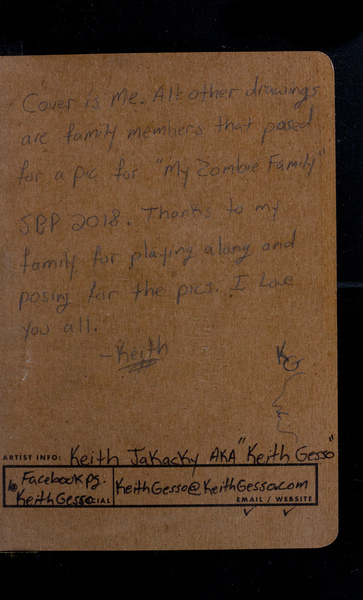 Cover is me. All other drawings
are family members that posed
for a pic for "My Zombie Family"
SBP 2018. Thanks to my
family for playing along and
posing for the pics. I Love
you all.
-Keith
KG
ARTIST INFO: Keith Jakacky AKA "Keith Gesso"
Facebook pg.
KeithGesso SOCIAL
KeithGesso@KeithGesso.com
EMAIL / WEBSITE